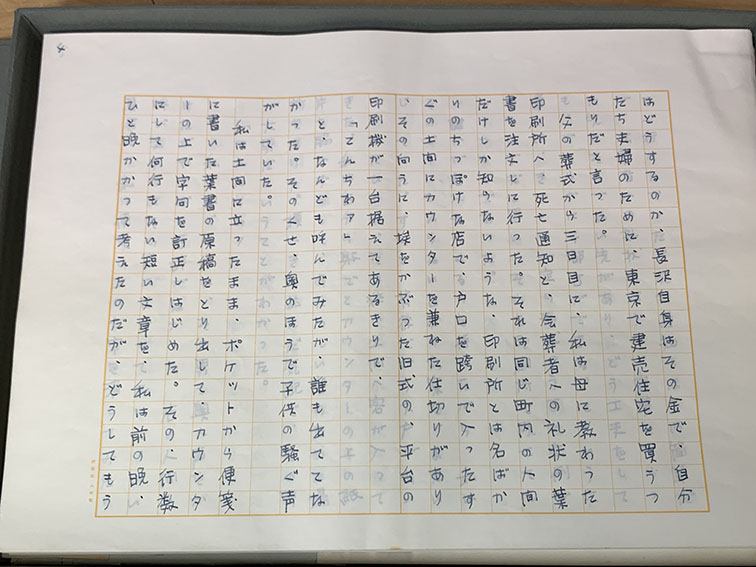 4
はどうするのか、長沢自身はその金で、自分
たち夫婦のために、東京で建売住宅を買うつ
もりだと言った。
父の葬式から三日目に、私は母に教わった
印刷所へ、死亡通知と、会葬者への礼状の葉
書を注文しに行った。それは同じ町内の人間
だけしか知らないような、印刷所とは名ばか
りのちっぽけな店で、戸口を跨いで入ったす
ぐの土間にカウンターを兼ねた仕切りがあり
、その向うに、埃をかぶった旧式の、平台の
印刷機が一台据えてあるきりで、
「こんちわァ」
と、なんども呼んでみたが、誰も出てこな
かった。そのくせ、奥のほうで子供の騒ぐ声
がしていた。
私は土間に立ったまま、ポケットから便箋
に書いた葉書の原稿をとり出して、カウンタ
ーの上で字句を訂正しはじめた。その、行数
にして何行もない短い文章を、私は前の晩、
ひと晩かかって考えたのだが、どうしてもう